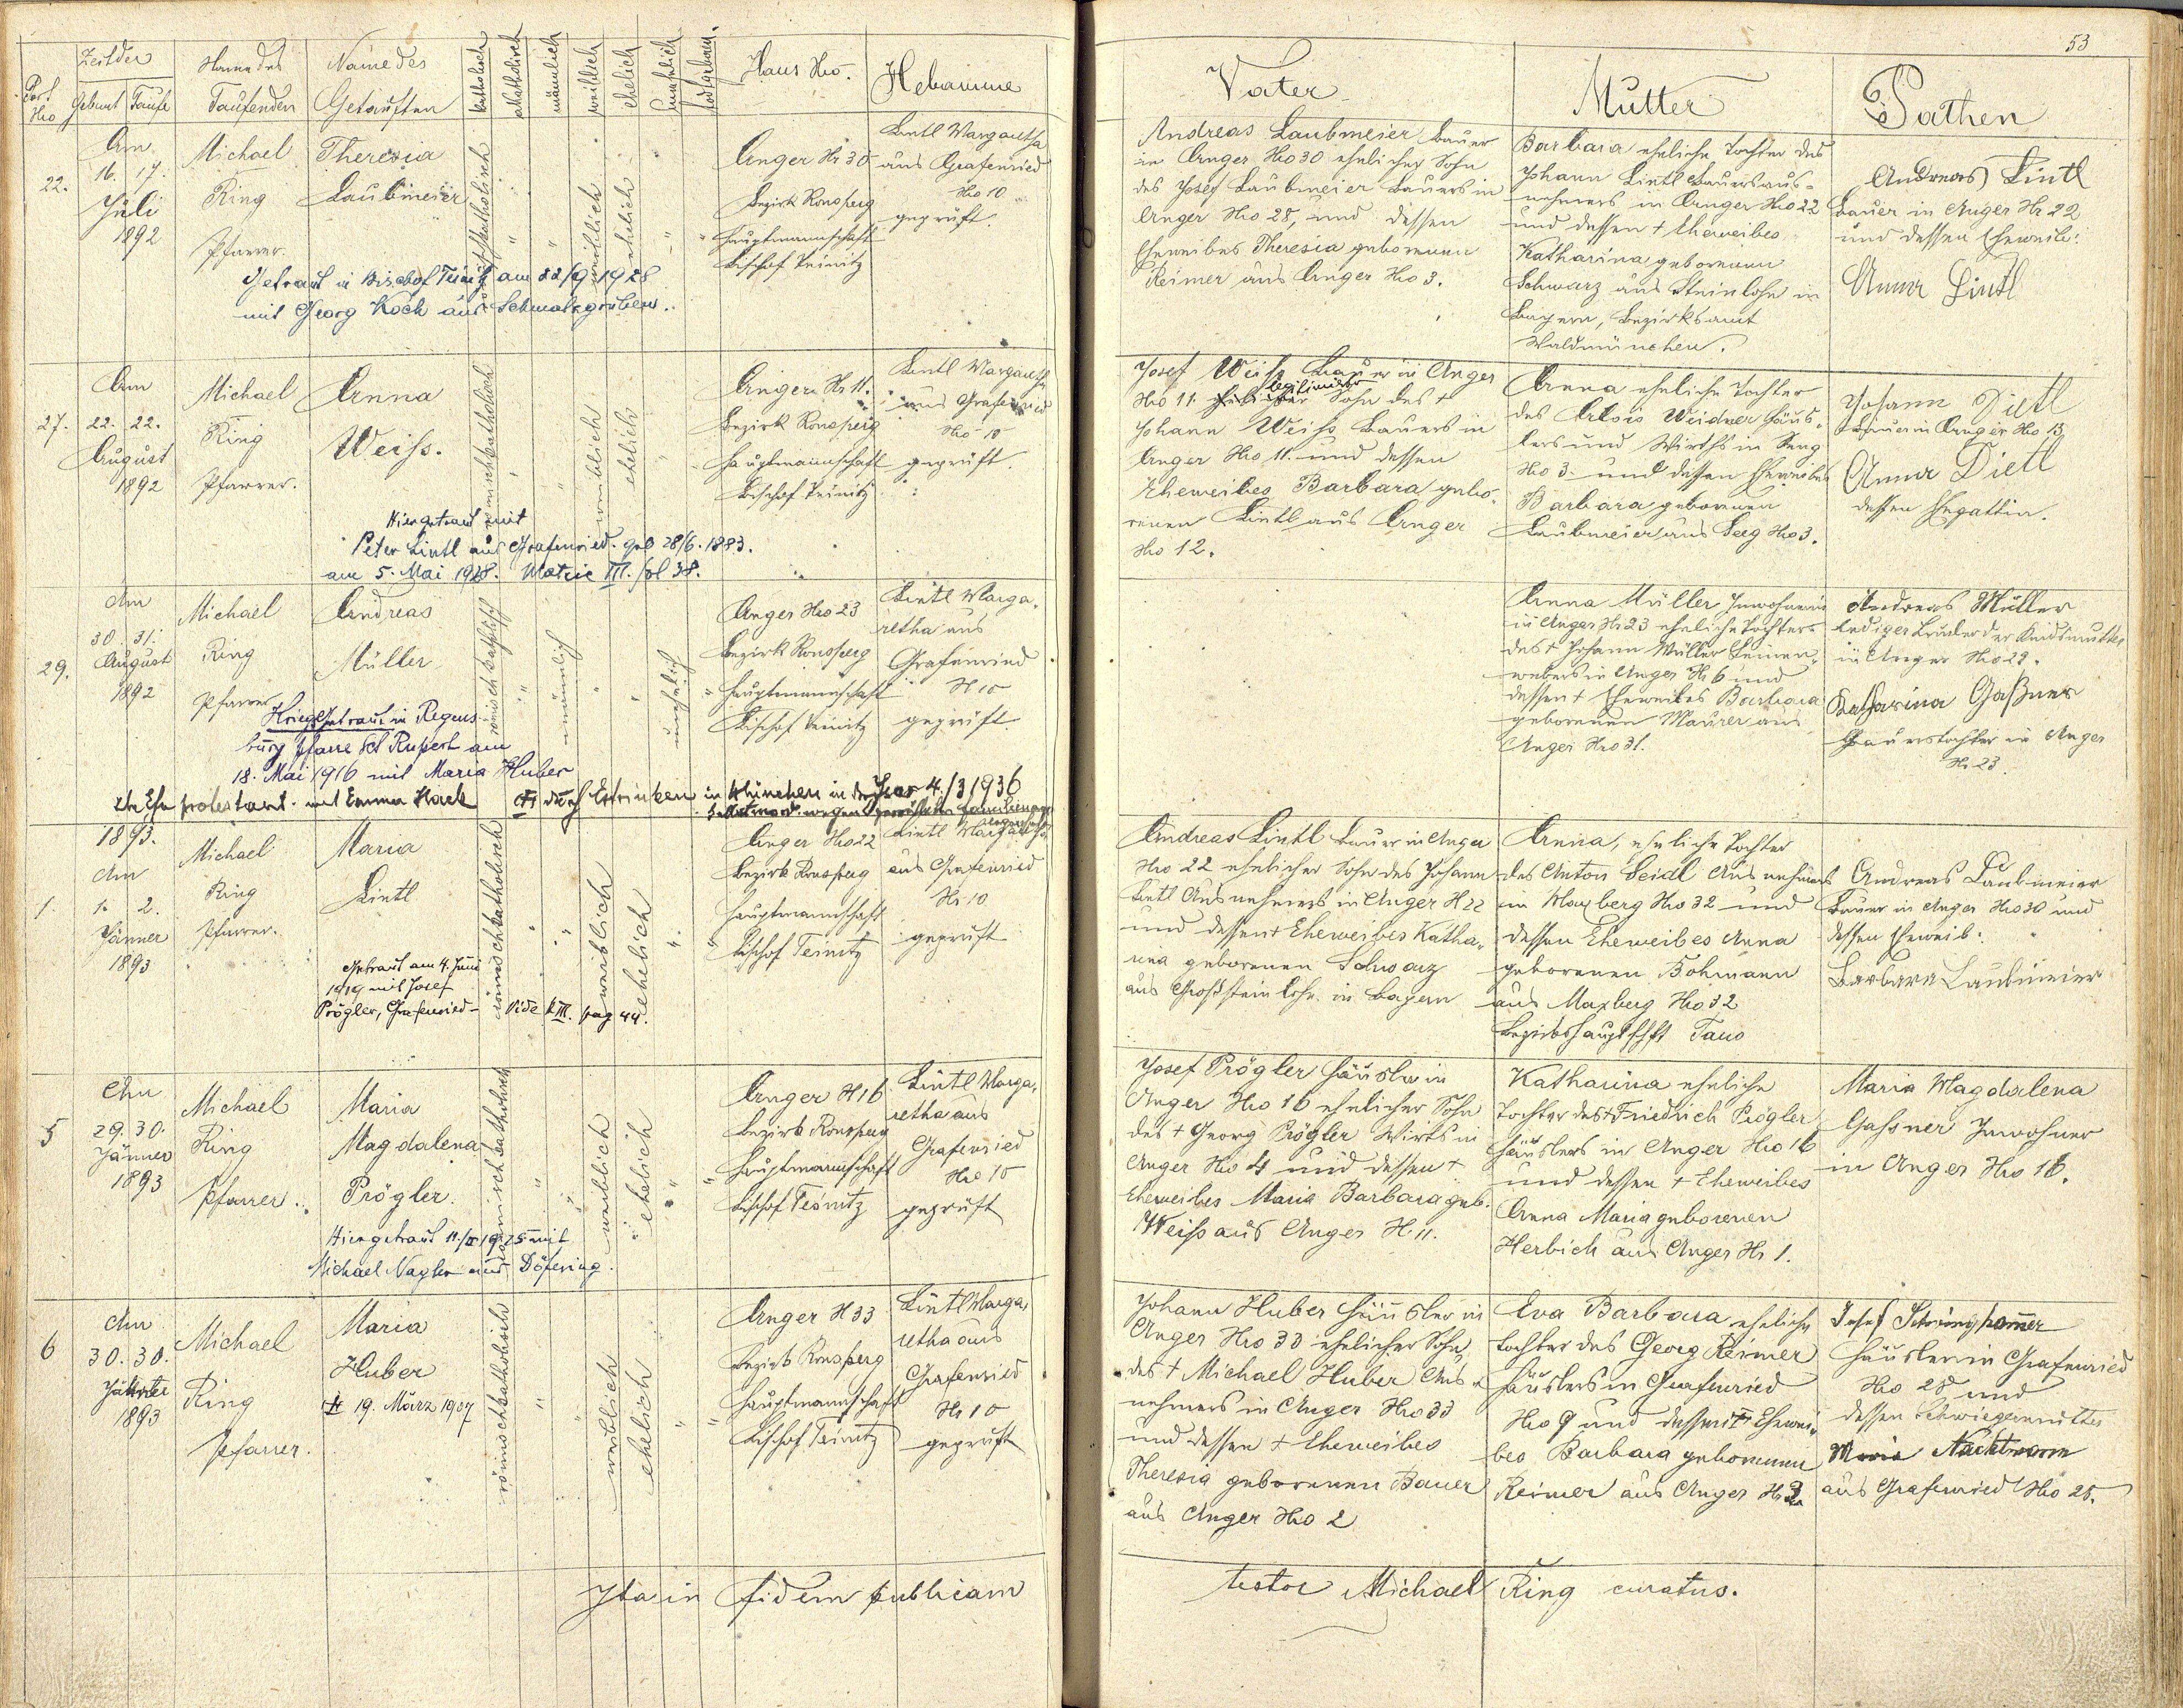 53
Port No
Zeit der
Geburt Taufe
Name des Taufenden
Name des Getauften
katholisch
akatholisch
männlich
weiblich
ehelich
unehelich
todtgeboren.
Haus No.
Hebamme
Vater
Mutter
Pathen
22.
Am
16. 17.
Juli
1892
Michael
Ring
Pfarrer.
Theresia
Laubmeier
römischkatholisch
weiblich
ehelich
Anger Nr 30
Bezirk Ronsperg
Hauptmannschaft
Bischof Teinitz
Lintl Margaretha
aus Grafenried
No 10
geprüft.
Getraut in Bischof Teinitz am 22/9 1928
mit Georg Koch aus Schmalzgruben.
Andreas Laubmeier Bauer
in Anger No 30 ehelicher Sohn
des Josef Laubmeier Bauers in
Anger No 28, und dessen
Eheweibes Theresia geborenen
Reimer aus Anger No 3.
Barbara eheliche Tochter des
Johann Lintl Bauersaus-
nehmers in Anger No 22
und dessen + Eheweibes
Katharina geborenen
Schwarz aus Steinlohe in
Bayern, Bezirksamt
Waldmünchen.
Andreas Lintl
Bauer in Anger Nr 22
und dessen Eheweib:
Anna Lintl
27.
Am
22. 22.
August
1892
Michael
Ring
Pfarrer.
Anna
Weiss.
römischkatholisch
weiblich
ehelich
Anger Nr 11.
Bezirk Ronsperg
Hauptmannschaft
Bischof Teinitz
Lintl Margaretha
aus Grafenried
No 10
geprüft.
Hier getraut mit
Peter Lintl aus Grafenried. geb 28/6. 1883.
am 5. Mai 1928. Matric III. fol 38.
Josef Weiss Bauer in Anger
No 11. ehelicher legitimierter Sohn des +
Johann Weiss Bauers in
Anger No 11. und dessen
Eheweibes Barbara gebo-
renen Lintl aus Anger
No 12.
Anna eheliche Tochter
des Alois Weidner Häus-
lers und Wirths in Seeg
No 3. und dessen Eheweibes
Barbara geborenen
Laubmeier aus Seeg No 3.
Johann Dietl
Bauer in Anger No 13
Anna Dietl
dessen Ehegattin.
29.
Am
30. 31.
August
1892
Michael
Ring
Pfarrer
Andreas
Müller
römischkatholisch
männlich
unehelich
Anger No 23
Bezirk Ronsperg
Hauptmannschaft
Bischof Teinitz
Lintl Marga-
retha aus
Grafenried
N 10
geprüft.
Kriegsgetraut in Regens-
burg Pfarre Sct Rupert am
18. Mai 1916 mit Maria Huber
2te Ehe protestant. mit Emma Hack
+ durch Ertrinken in München in der Isar 4./3 1936
Selbstmord wegen
Anna Müller Inwohnerin
in Anger Nr 23 eheliche Tochter
des + Johann Müller Leinen-
webers in Anger N 6 und
dessen + Eheweibes Barbara
geborenen Maurer aus
Anger No 31.
Andreas Müller
lediger Bruder der Kindsmutter
in Anger No 29.
Katharina Gaßner
Bauerstochter in Anger
Nr 23
1.
1893.
Am
1. 2.
Jänner
1893
Michael
Ring
Pfarrer.
Maria
Lintl
römischkatholisch
weiblich
ehelich
Anger No 22
Bezirk Ronsperg
Hauptmannschaft
Bischof Teinitz
Lintl Margaretha
aus Grafenried
Nr 10
geprüft
Getraut am 4. Juni
1919 mit Josef
Prögler, Grafenried – Vide t. III. pag 44.
Andreas Lintl Bauer in Anger
No 22 ehelicher Sohn des Johann
Lintl Ausnehmers in Anger N 22
und dessen + Eheweibes Katha-
rina geborenen Schwarz
aus Großsteinlohe in Bayern
Anna, eheliche Tochter
des Anton Seidl Ausnehmers
in Maxberg No 32 und
dessen Eheweibes Anna
geborenen Bohmann
aus Maxberg No 32
Bezirkshauptschft Taus
Andreas Laubmeier
Bauer in Anger No 30 und
dessen Eheweib.
Barbara Laubmeier
5
Am
29. 30.
Jänner
1893
Michael
Ring
Pfarrer.
Maria
Magdalena
Prögler.
römischkatholisch
weiblich
ehelich
Anger N 16
Bezirk Ronsperg
Hauptmannschaft
Bischof Teinitz
Lintl Marga-
retha aus
Grafenried
No 10
geprüft
Hier getraut 11./II 1925 mit
Michael Nagler aus Döfering.
Josef Prögler Häusler in
Anger No 16 ehelicher Sohn
des + Georg Prögler Wirts in
Anger No 4 und dessen +
Eheweibes Maria Barbara geb.
Weiss aus Anger N 11.
Katharina eheliche
Tochter des + Friedrich Prögler
Häuslers in Anger No 16
und dessen + Eheweibes
Anna Maria geborenen
Herbich aus Anger Nr 1.
Maria Magdalena
Gassner Inwohner
in Anger No 16.
6
Am
30. 30.
Jänner
1893
Michael
Ring
Pfarrer.
Maria
Huber
+ 19. März 1907
römischkatholisch
weiblich
ehelich
Anger N 33
Bezirk Ronsperg
Hauptmannschaft
Bischof Teinitz
Lintl Marga-
retha aus
Grafenried
Nr 10
geprüft
Johann Huber Häusler in
Anger No 33 ehelicher Sohn
des + Michael Huber Aus-
nehmers in Anger No 33
und dessen + Eheweibes
Theresia geborenen Bauer
aus Anger No 2
Eva Barbara eheliche
Tochter des Georg Reimer
Häuslers in Grafenried
No 9 und dessen + Ehewei-
bes Barbara geborenen
Reimer aus Anger N 3
Josef
Häusler in Grafenried
No 28 und
dessen Schwiegermutter
Maria Nachtmann
aus Grafenried No 28.
Ita in fidem publicam
testor Michael Ring curatus.